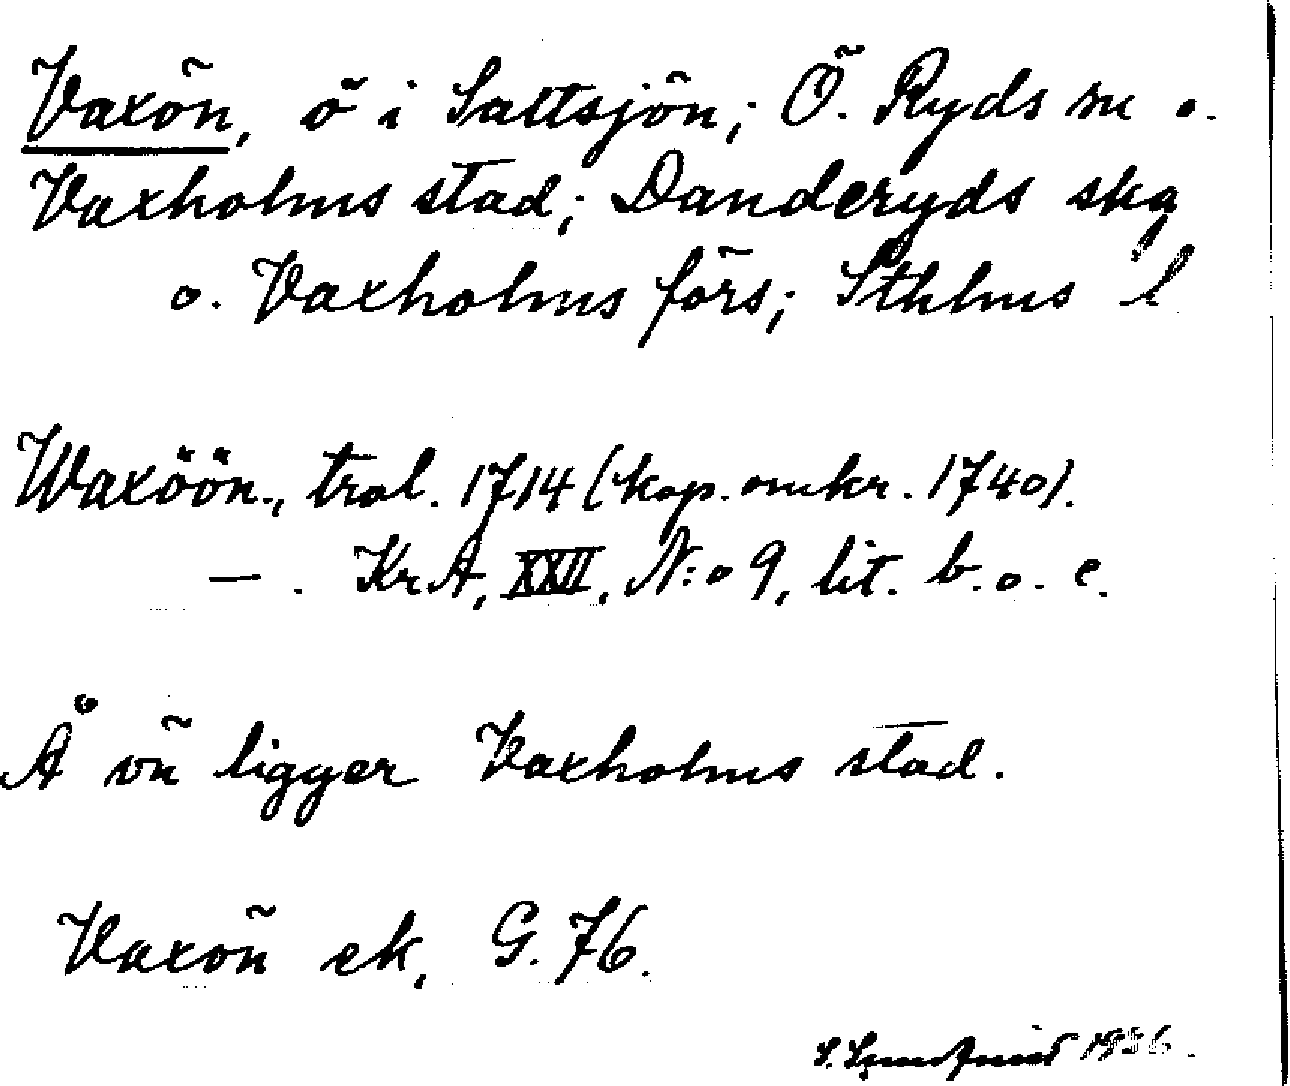 Vaxön, ö i Saltsjön; Ö. Ryds sn o.
Vaxholms stad; Danderyds skg
o. Vaxholms förs; Sthlms l
Waxöön., tral. 1714 (kop. omkr. 1740).
— . KrA, XXII, N:o 9, lit. b. o. c.
Å vn ligger Vaxholms stad.
Vaxön ek, G. 76.
S. 1936.